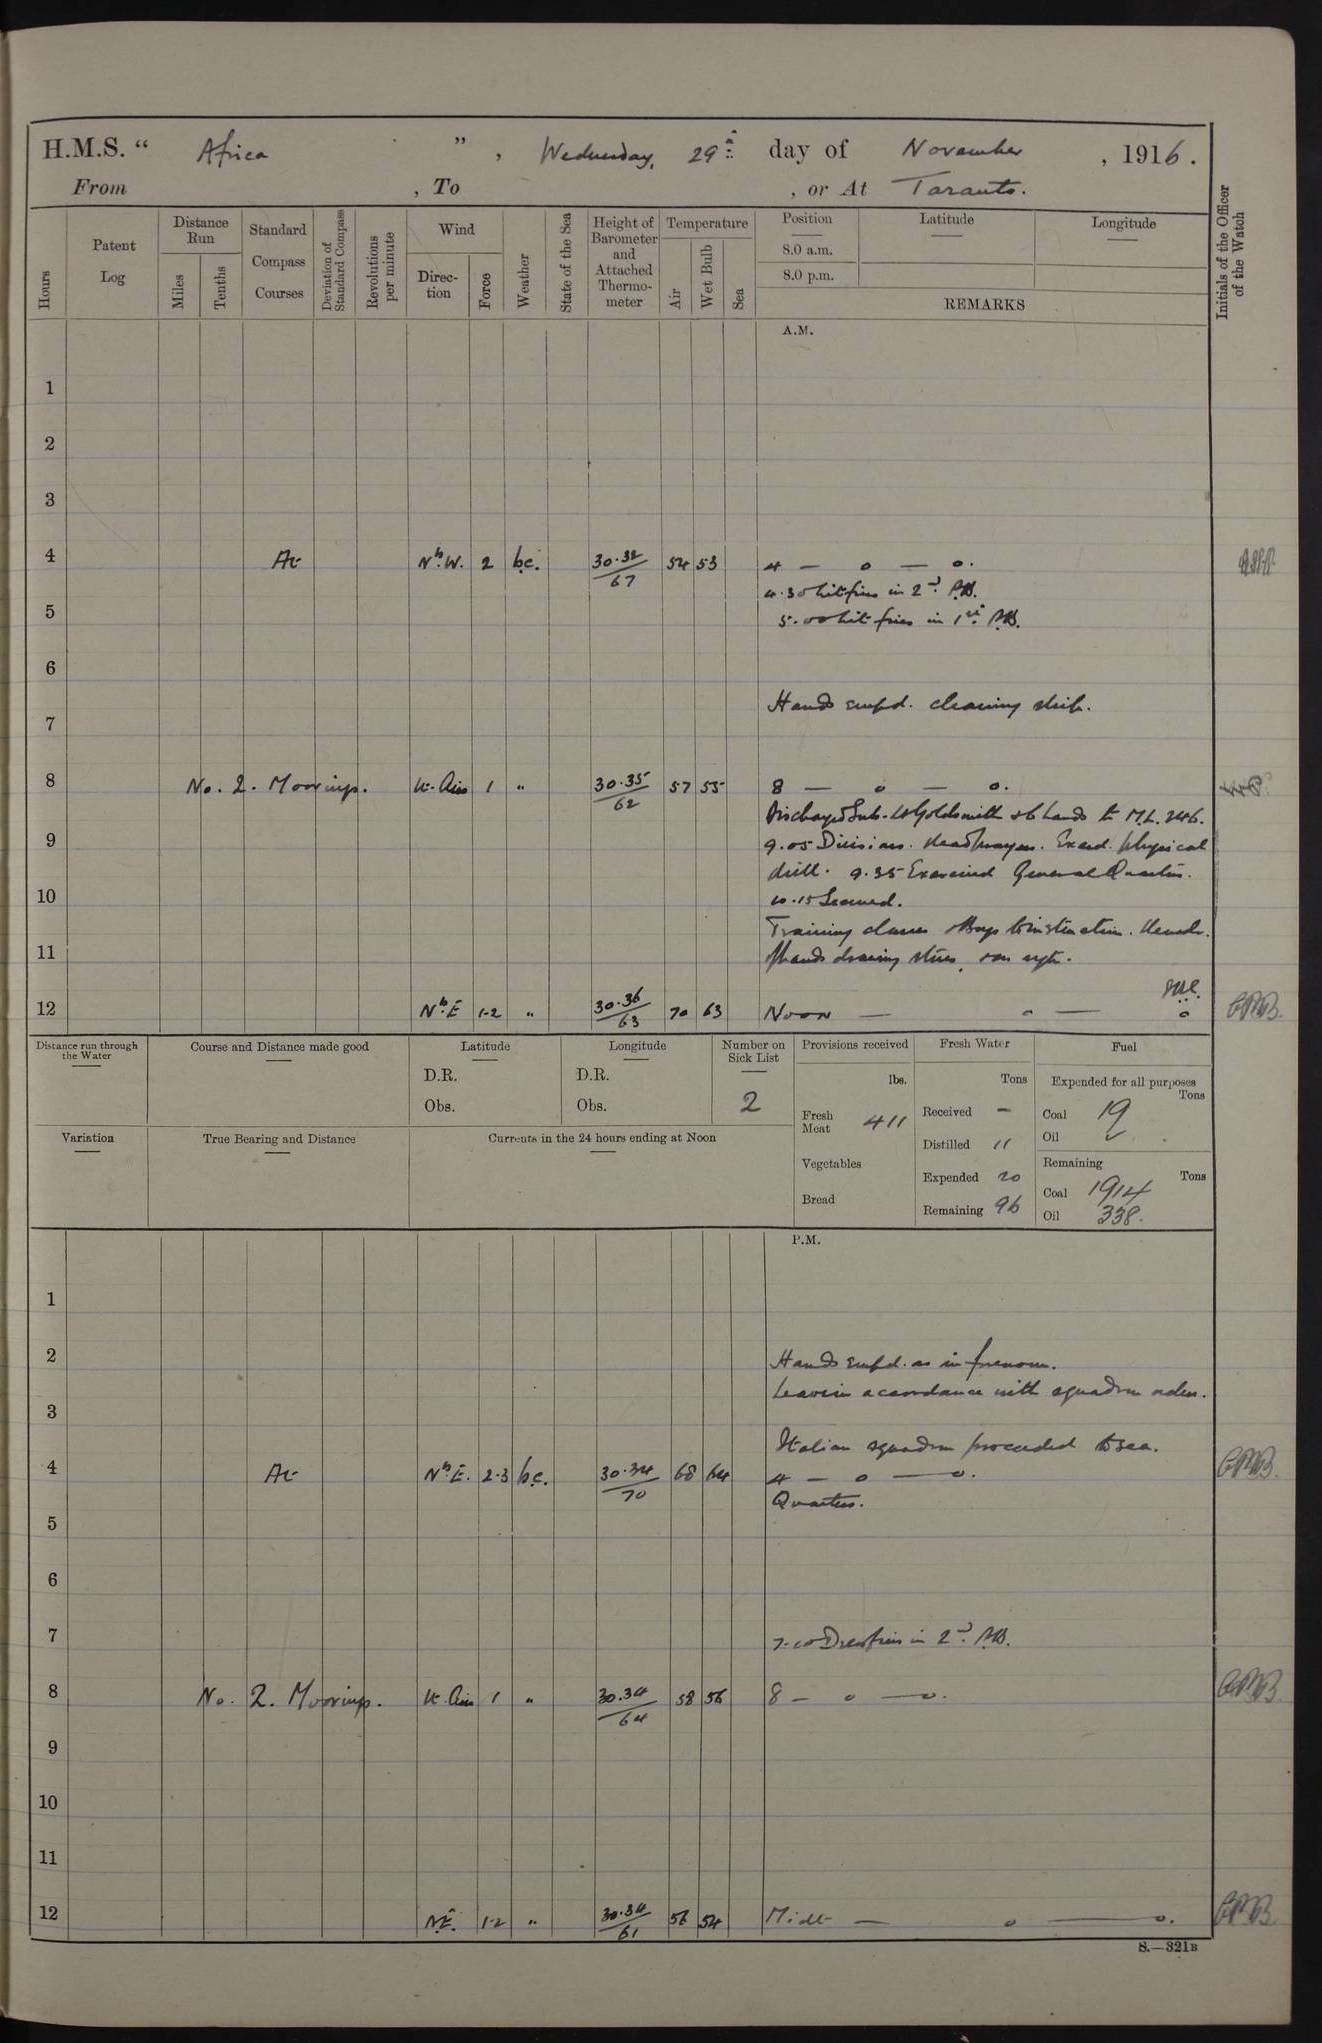 H.M.S. “ Africa ” , Wednesday, 29th day of November , 1916.
From , To , or At Taranto.
Hours
Patent Log
Distance Run
Miles
Tenths
Standard Compass Courses
Deviation of Standard Compass
Revolutions per minute
Wind
Direc-tion
Force
Weather
State of the Sea
Height of Barometer and Attached Thermo-meter
Temperature
Air
Wet Bulb
Sea
Position
Latitude
Longitude
8.0 a.m.
8.0 p.m.
REMARKS
Initials of the Officer of the Watch
A.M.
1
2
3
4 At NbW. 2 b.c. 30.32/67 54 53 4 — o — o.
4.30 lit fires in 2nd P.B.
5 5.00 lit fires in 1st P.B.
6
Hands empd. cleaning ship.
7
8 No. 2. Moorings. Lt. Airs 1 " 30.35/62 57 55 8 — o — o.
Discharged Sub-Lt Goldsmith & 6 hands to M.L. 246.
9 9.05 Divisions. Read prayers. Exerd. physical
drill. 9.35 Exercised General Quarters.
10 10.15 Secured.
Training classes & Boys to instruction. Remdr.
11 of hands drawing stores, & as reqte.
12 NbE 1-2 " 30.36/63 70 63 Noon — o — o
Distance run through the Water
Course and Distance made good
Latitude
D.R.
Obs.
Longitude
D.R.
Obs.
Number on Sick List
2
Provisions received
lbs.
Fresh Meat 411
Vegetables
Bread
Fresh Water
Tons
Received –
Distilled 11
Expended 20
Remaining 96
Fuel
Expended for all purposes
Tons
Coal 19
Oil
Remaining
Tons
Coal 1914
Oil 338.
Variation
True Bearing and Distance
Currents in the 24 hours ending at Noon
P.M.
1
2 Hands empd. as in forenoon.
Leave in accordance with squadron orders.
3
Italian squadron proceeded to sea.
4 At NbE. 2-3 b.c. 30.34/70 68 64 4 — o — o.
Quarters.
5
6
7 7.10 Drew fires in 2nd P.B.
8 No. 2. Moorings. Lt. Airs 1 " 30.34/64 58 56 8 — o — o.
9
10
11
12 NE. 1-2 " 30.34/61 56 54 Midt — o — o.
S.—321B